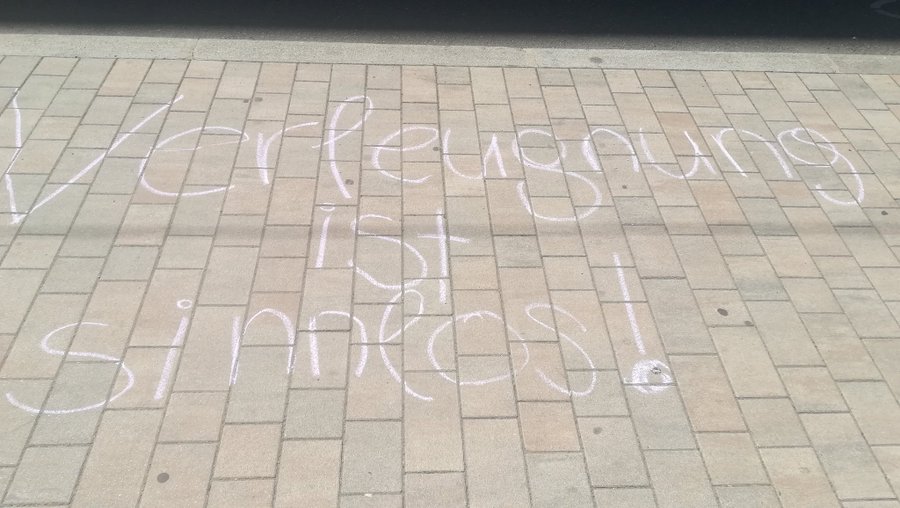 Verleugnung
ist
sinnlos!